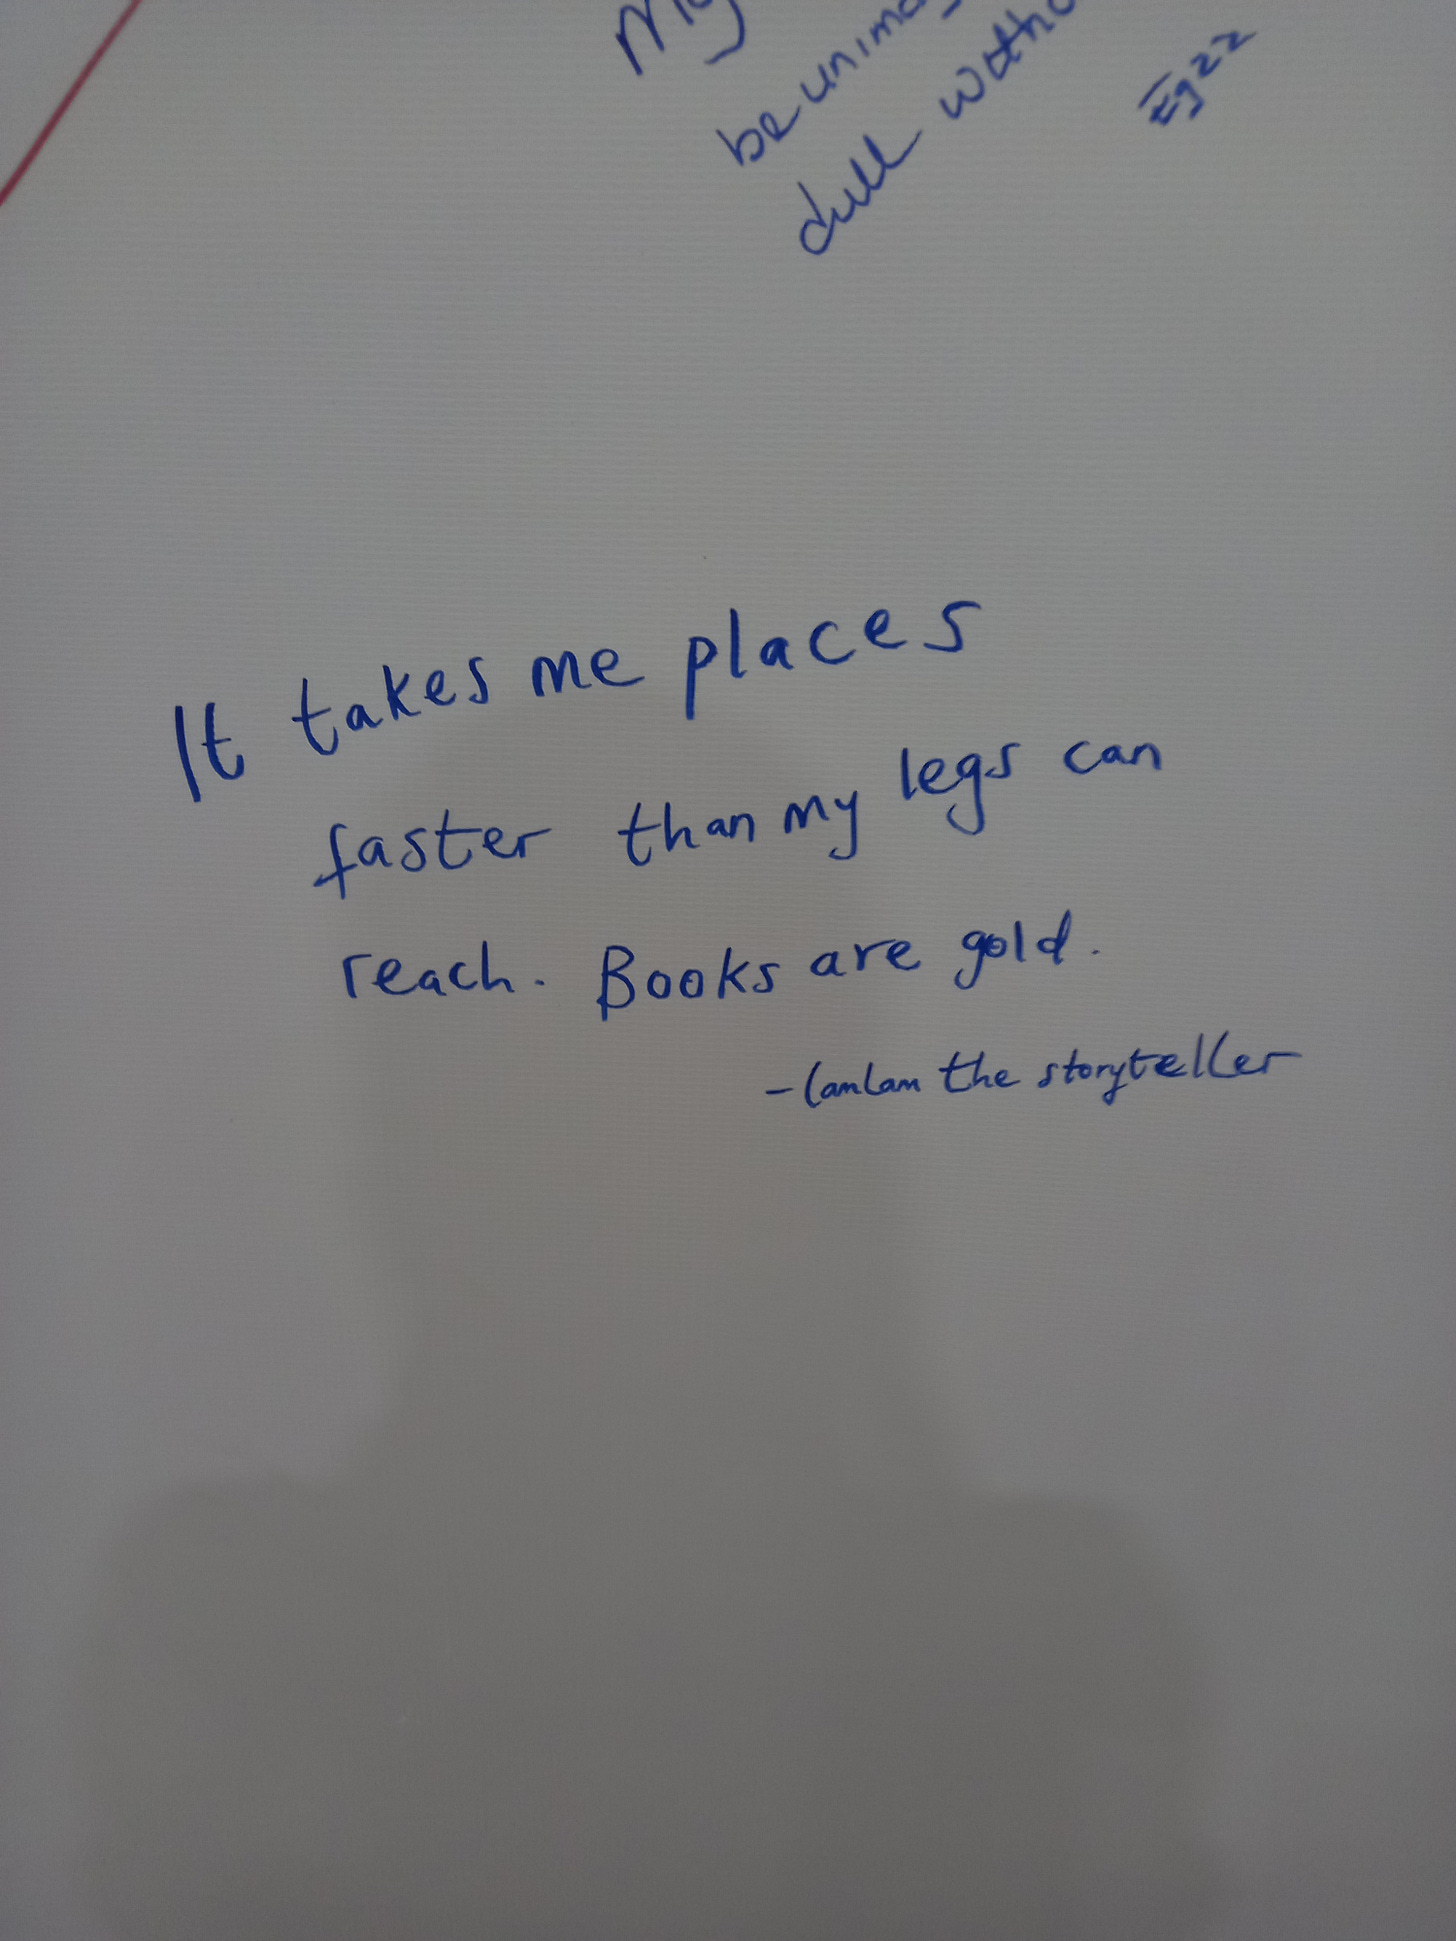 My
be unima
dull witho
Egzz
It takes me places
faster than my legs can
reach. Books are gold.
- lanlan the storyteller